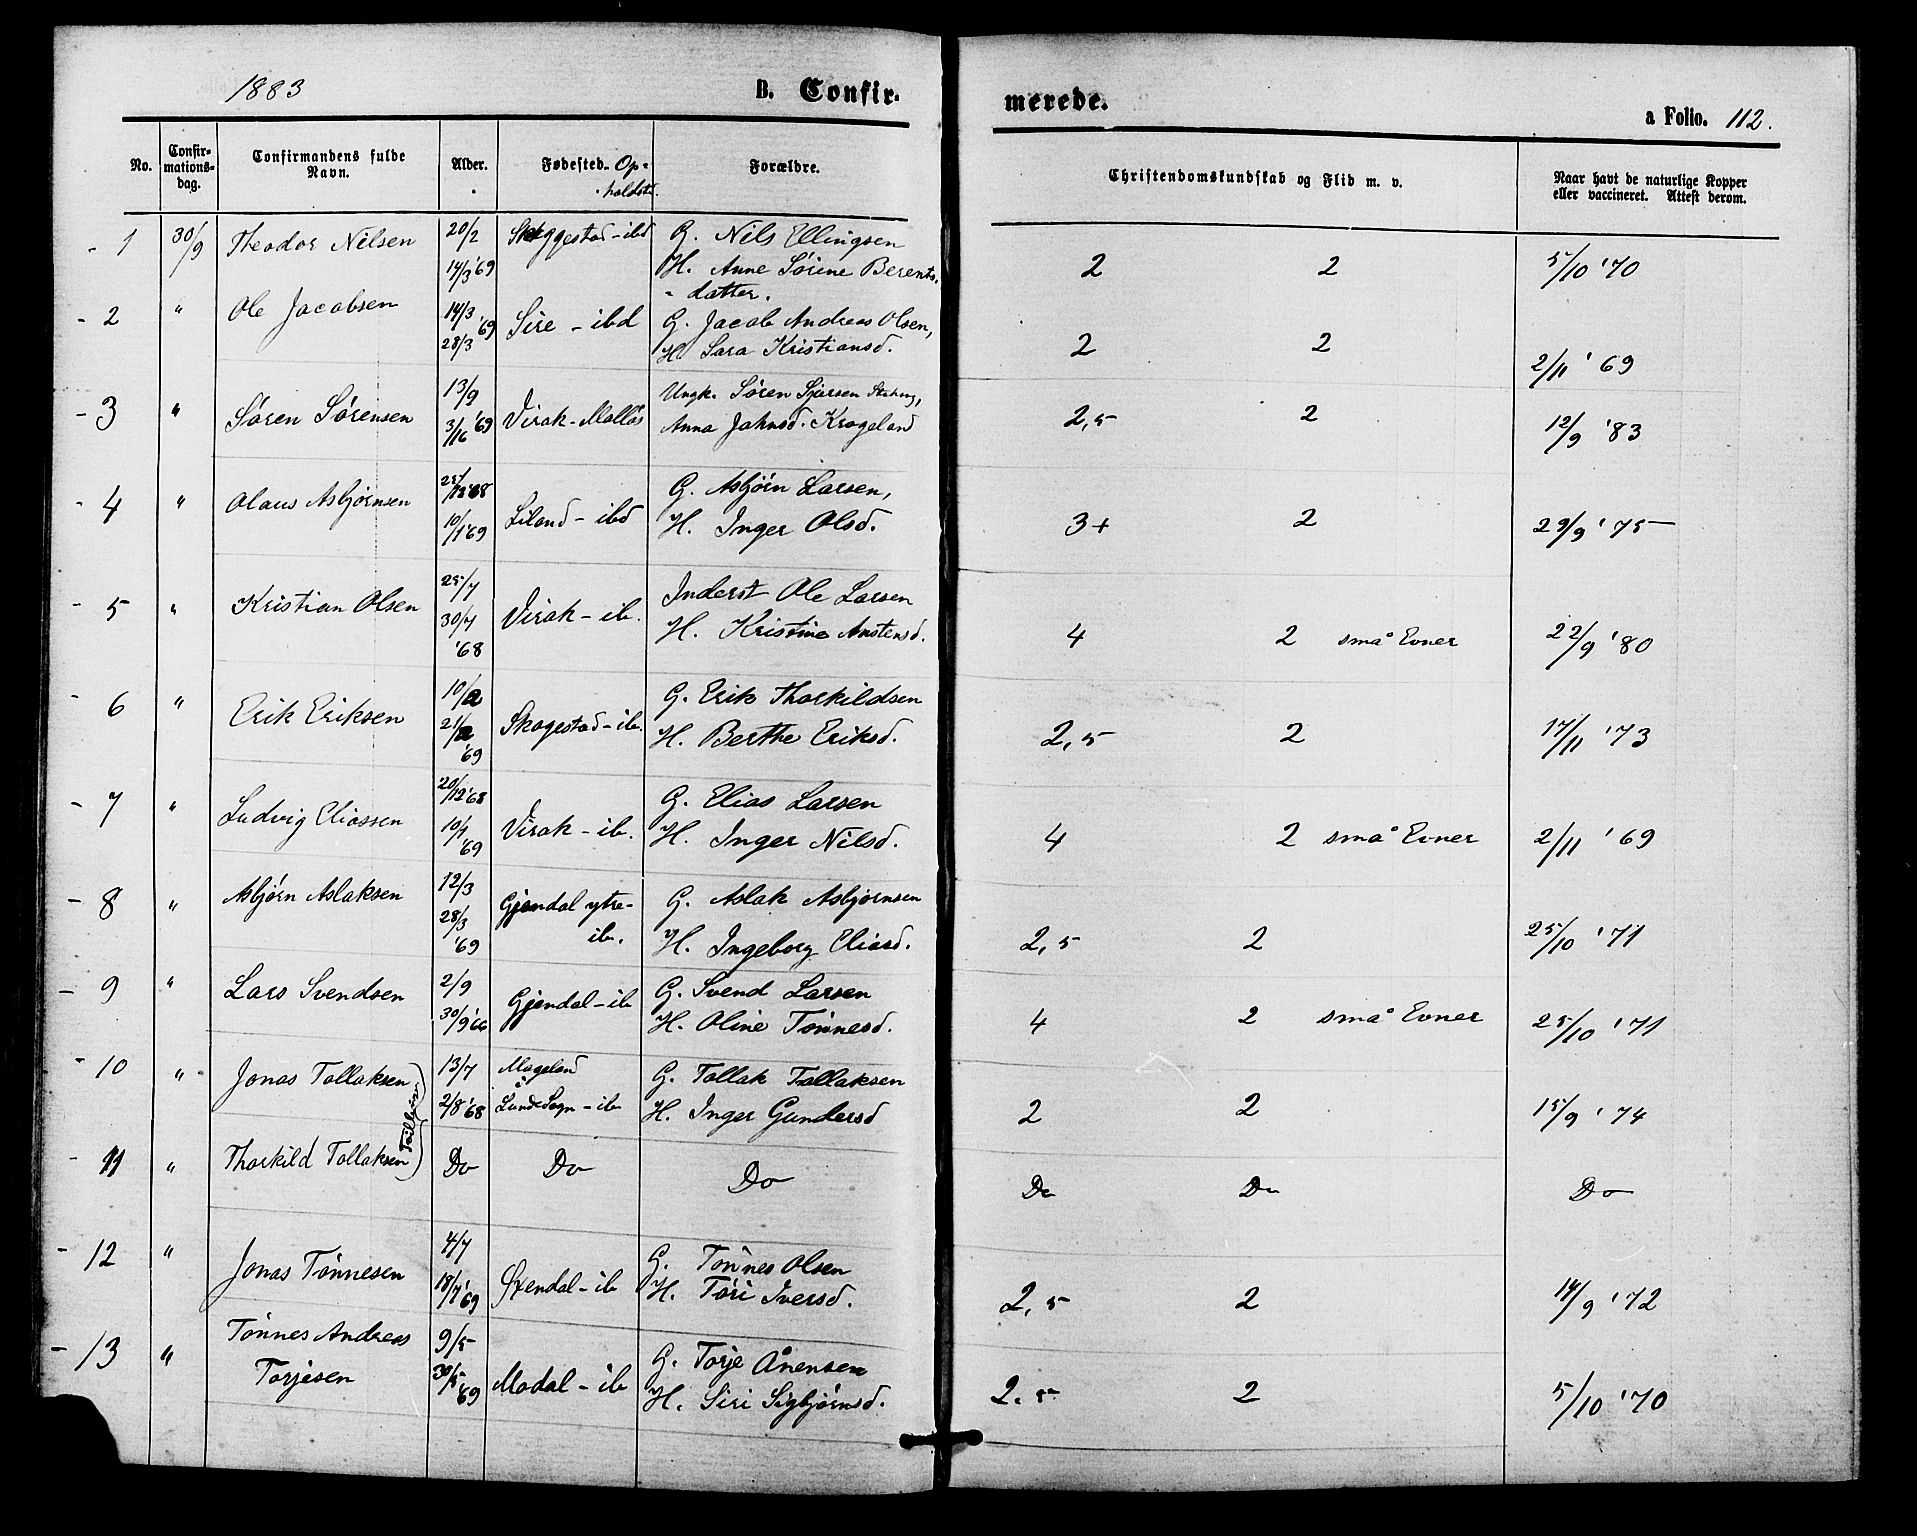 1883
B. Confir-
merede.
a Folio. 112.
No.
Confir-
mations-
dag.
Confirmandens fulde
Navn.
Alder.
Fødested. Op-
holdste.
Forældre.
Christendomskundskab og Flid m. v.
Naar havt de naturlige Kopper
eller vaccineret. Attest derom.
- 1 30/9 Theodor Nilsen 20/2 Skoggestad - ibd G. Nils Ellingsen
14/3 '69 H. Anne Sørine Berents-
datter. 2 2 5/10 '70
- 2 " Ole Jacobsen 14/3 '69 Sire - ibd G. Jacob Andreas Olsen,
28/3 H. Sara Kristiansd. 2 2 2/11 '69
- 3 " Søren Sørensen 13/9 Virak - Mollös Ungk. Søren
3/16 '69 Anna Johnsd. Krogeland 2,5 2 12/9 '83
- 4 " Olaus Asbjørnsen 25/12 '68 Liland - ibd G. Asbjörn Larsen,
10/1 '69 H. Inger Olsd. 3+ 2 29/9 '75
- 5 " Kristian Olsen 25/7 Virak - ib. Inderst Ole Larsen
30/7 H. Kristine Anstensd.
'68 4 2 små Evner 22/9 '80
- 6 " Erik Eriksen 10/2 Skogestad - ib. G. Erik Thorkildsen
21/2 H. Berthe Eriksd.
'69 2,5 2 17/11 '73
- 7 " Ludvig Eliassen 20/12 '68 Virak - ib. G. Elias Larsen
10/1 '69 H. Inger Nilsd. 4 2 små Evner 2/11 '69
- 8 " Asbjørn Aslaksen 12/3 Gjendal ytre - G. Aslak Asbjørnsen
28/3 ib. H. Ingeborg Eliasd.
'69 2,5 2 25/10 '71
- 9 " Lars Svendsen 2/9 Gjendal - ib G. Svend Larsen
30/9 '66 H. Oline Tønnesd. 4 2 små Evner 25/10 '71
- 10 " Jonas Tollaksen 13/7 Mageland G. Tollak Tollaksen
2/8 '68 Lunde Sogn - ib H. Inger Gundersd 2 2 15/9 '74
Tvilling
- 11 " Thorkild Tollaksen Do Do Do Do Do Do
- 12 " Jonas Tønnesen 4/7 G. Tønnes Olsen
18/7 '69 Øxendal - ib H. Tøri Iversd. 2,5 2 14/9 '72
- 13 " Tønnes Andreas 9/5 G. Torje Ånensen
Torjesen 30/5 '69 Modal - ib H. Siri Sigbjørnsd. 2.5 2 5/10 '70